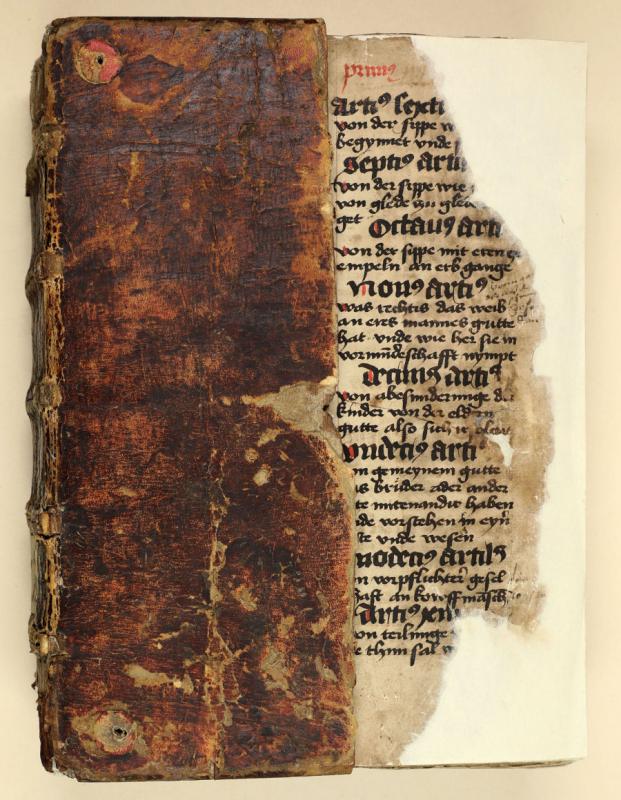 primus
Artiꝰ sexti
von der sippe w
begynnet vnde
Septiꝰ arti
von der sippe wie
von glede zu gled
get Octauꝰ arti
von der sippe mit eren ex
empeln an erb gange
Nonꝰ artiꝰ
was rechtis das weib
an eres mannes gutte
hat vnde wie her sie in
vormūdeschafft nympt
Decimꝰ artiꝰ
von abesunderunge der
kinder von der eldern
gutte also sich
vndeciꝰ arti
m gemeynem gutte
as bruder ader ander
te mitenandir haben
nde vorstehen in eyn
te vnde wesen
uodeciꝰ artilꝰ
n vorpflichter gesel
haft an kowffmasch
Artiꝰ xiii
von teilunge
e thun sal